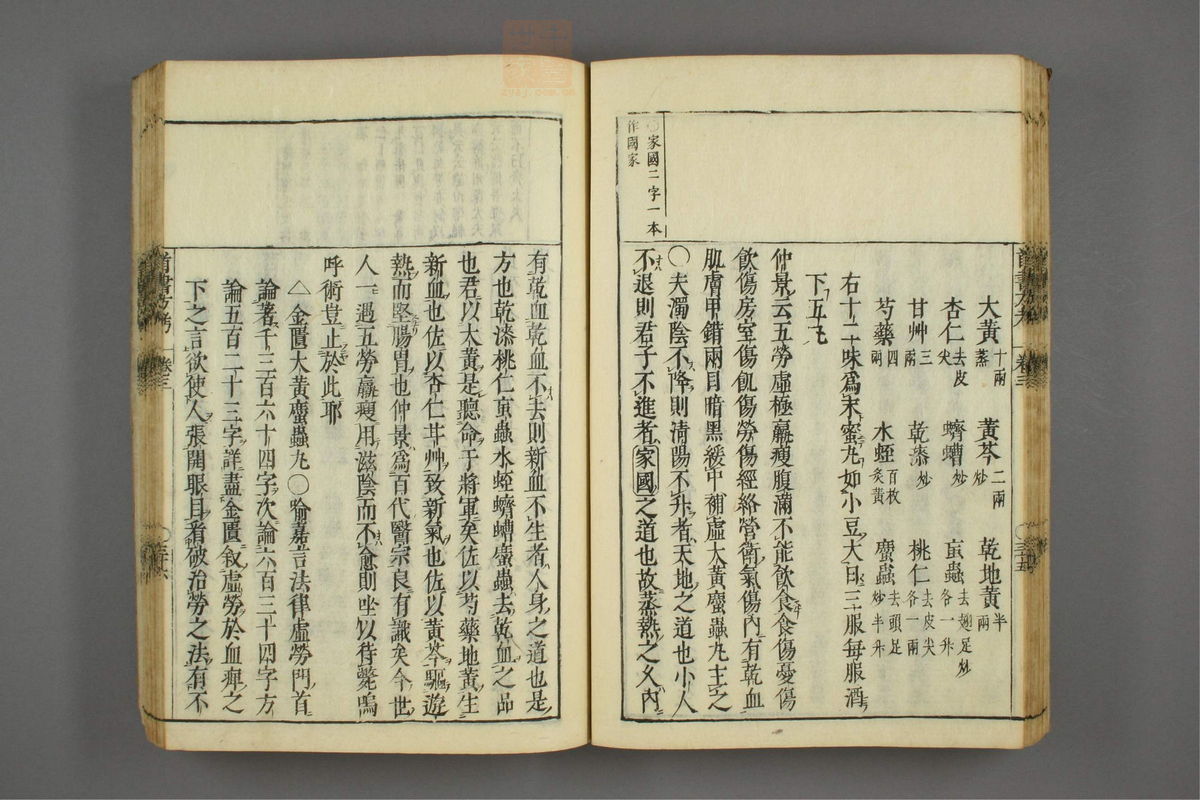 〇家國二字一本
作國家
大黃十兩蒸 黃芩二兩炒 乾地黃半兩
杏仁去皮尖 蠐螬炒 䖟蟲去翅足炒各一升
甘艸三兩 乾漆炒 桃仁去皮尖各一兩
芍藥四兩 水蛭百枚炙黃 䗪蟲去頭足炒半升
右十二味爲末蜜丸如小豆大日三服每服酒
下五七
仲景云五勞虛極羸瘦腹滿不能飲食食傷憂傷
飲傷房室傷飢傷勞傷經絡營衛氣傷內有乾血
肌膚甲錯兩目暗黑緩中補虛大黃䗪蟲丸主之
〇夫濁陰不降則清陽不升者天地之道也小人
不退則君子不進者家國之道也故蒸熱之久內
首書方考 卷三
有乾血乾血不去則新血不生者人身之道也是
方也乾漆桃仁䖟蟲水蛭蠐螬䗪蟲去乾血之品
也君以大黃是聽命于將軍矣佐以芍藥地黃生
新血也佐以杏仁甘艸致新氣也佐以黃芩驅遊
熱而堅腸胃也仲景爲百代醫宗良有識矣今世
人一遇五勞羸瘦用滋陰而不愈則坐以待斃嗚
呼術豈止於此耶
△金匱大黃䗪蟲丸〇喻嘉言法律虛勞門首
論著千三百六十四字次論六百三十四字方
論五百二十三字詳盡金匱敘虛勞於血痺之
下之言欲使人張開眼目看破治勞之法有不
首書方考 卷三